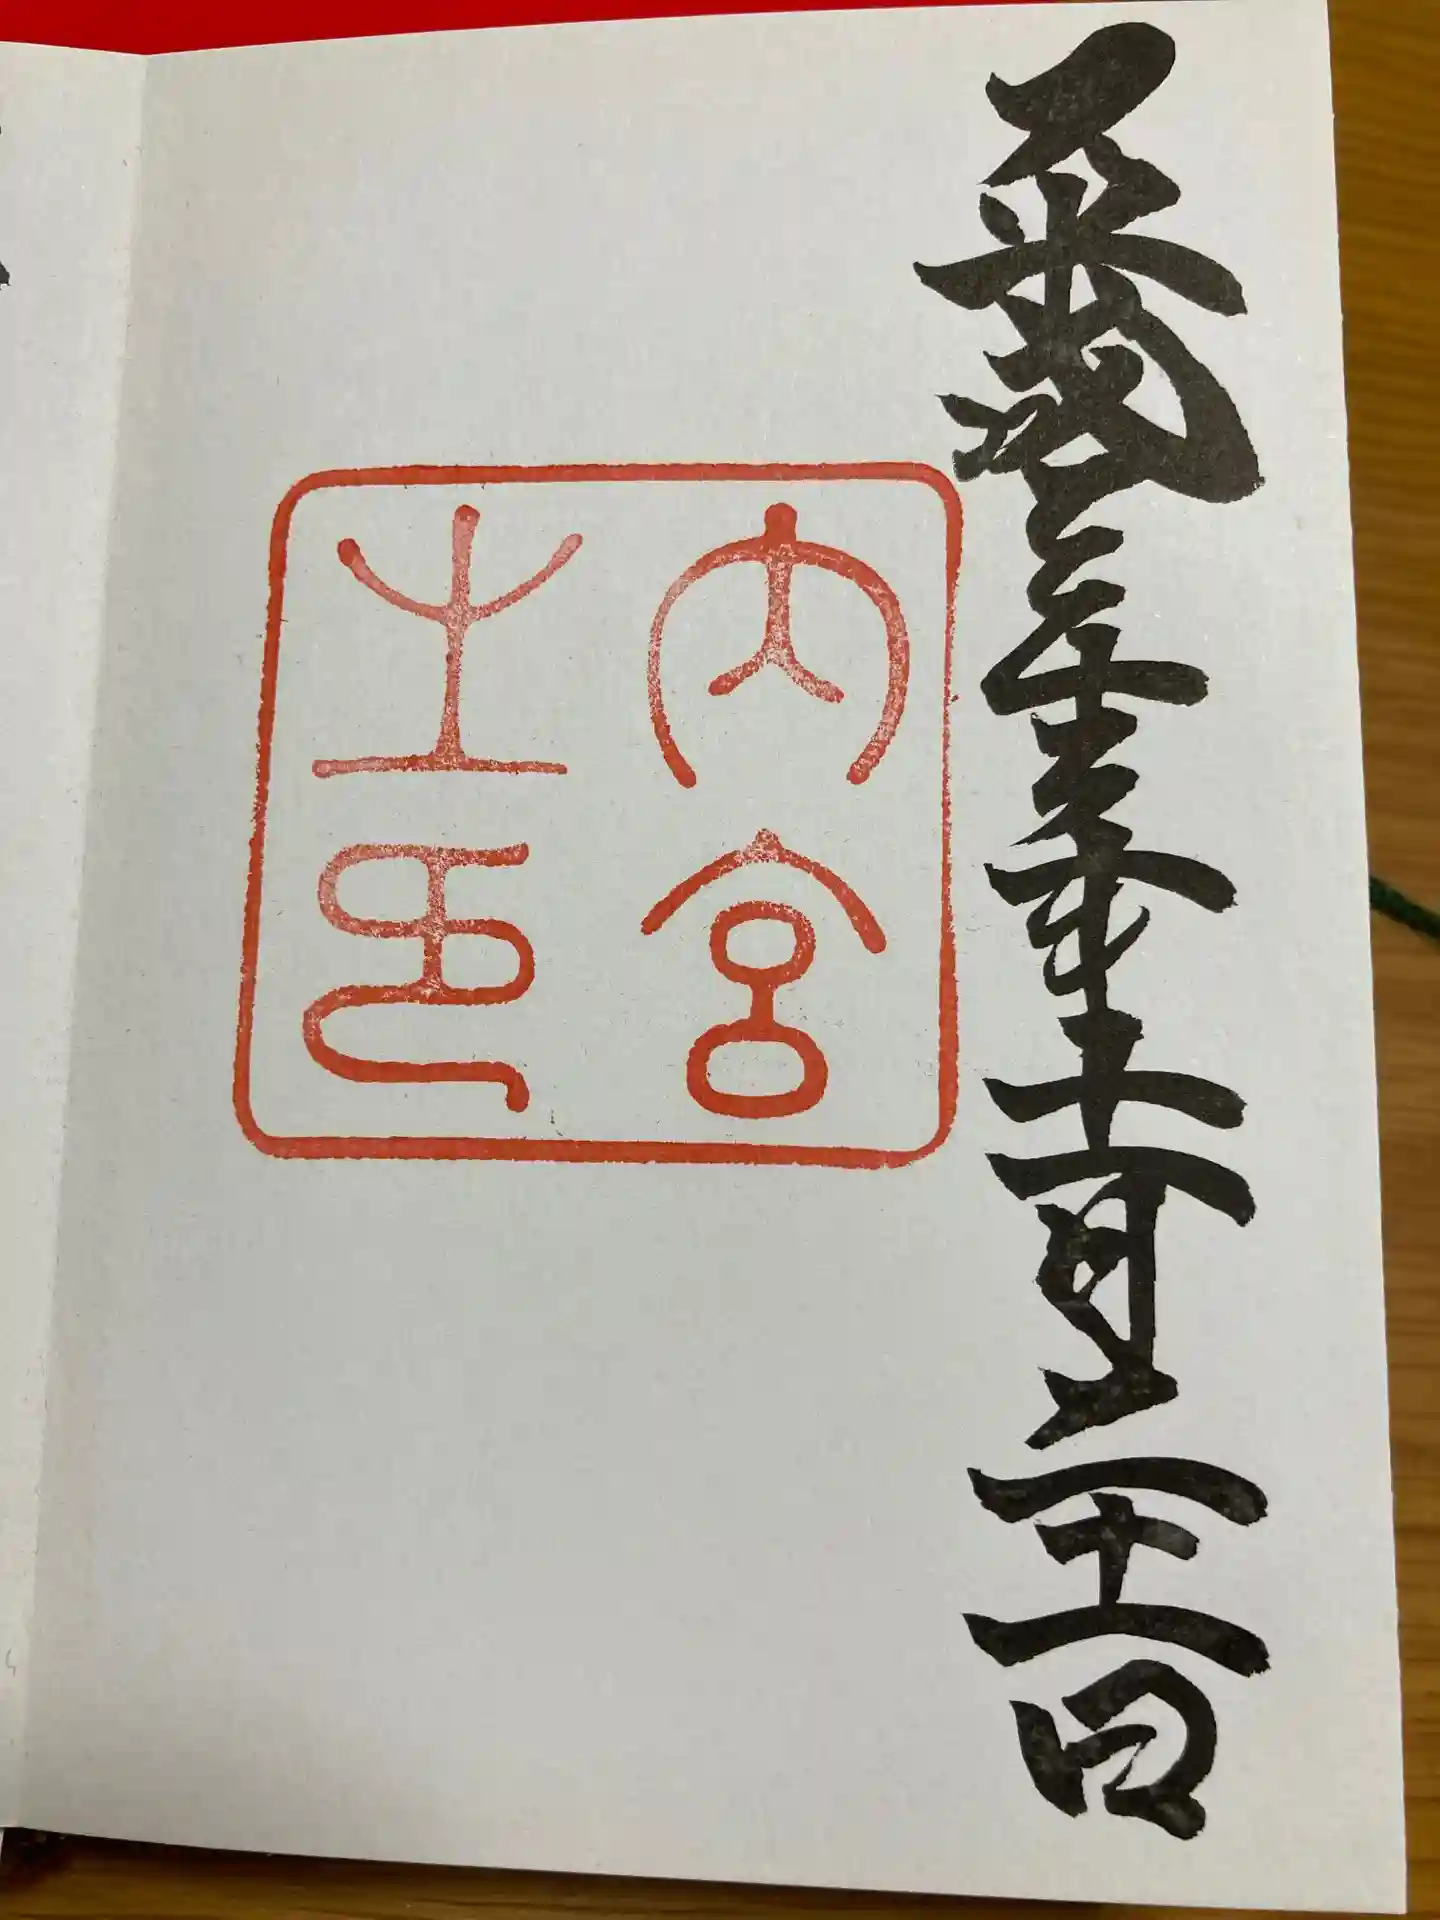 平成
年十一月二十一日
内宮
之印